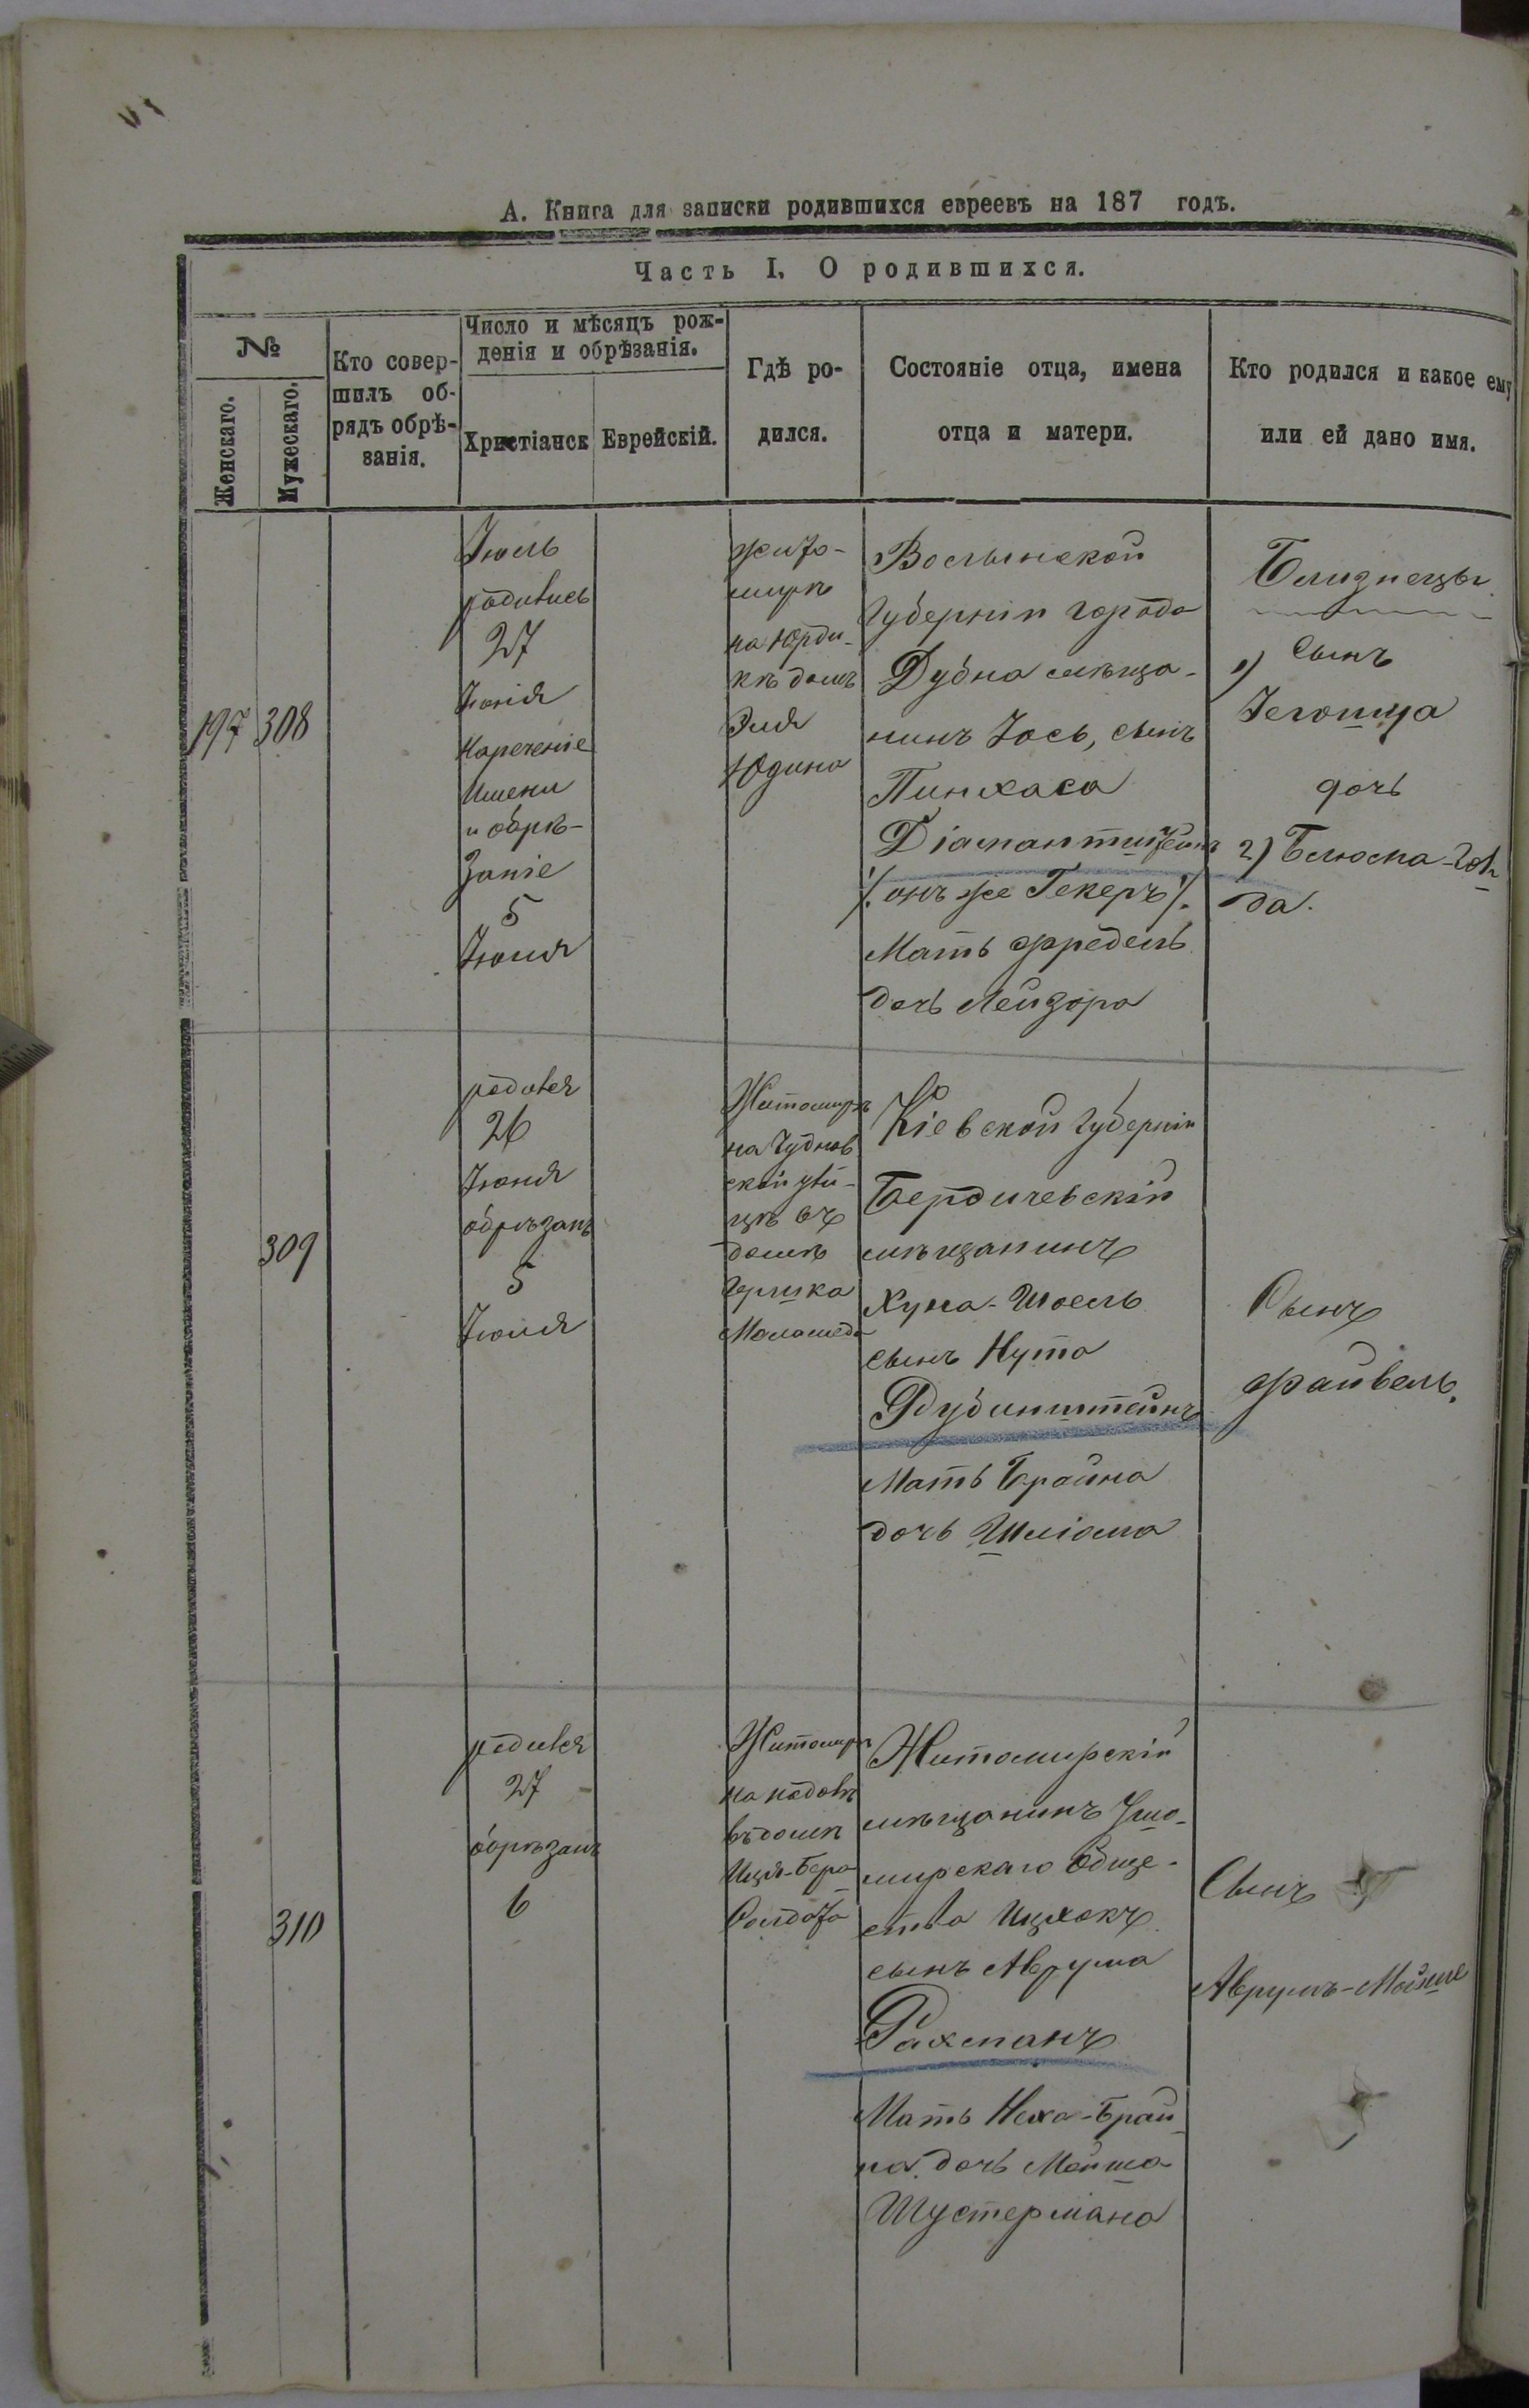 А. Книга для записки родившихся евреевъ на 187 годъ.
Часть I. О родившихся.
№
Женскаго.
Мужескаго.
Кто совер-
шилъ об-
рядъ обрѣ-
занія.
Число и мѣсяцъ рож-
денія и обрѣзанія.
Христіанск
Еврейскій.
Гдѣ ро-
дился.
Состояніе отца, имена
отца и матери.
Кто родился и какое ему
или ей дано имя.
197
308
Іюль
родились
27
Іюнія
Наречение
Имени
и обрѣ-
заніе
5
Іюля
Жито-
миръ
на Юрди-
кѣ домъ
Эля
Юдина
Волынской
Губерніи города
Дубна мѣща-
нинъ Іось, сынъ
Пинхаса
Діамантштейнъ
/. онъ же Гекеръ /.
Мать Фредель
дочь Лейзора
Близнецы
1) Сынъ
Іегошуа
дочь
2) Блюма-Гол
да.
309
родился
26
Іюня
обрѣзанъ
5
Іюля
Житомиръ
на Чуднов
ской ули-
цѣ въ
домѣ
Гершка
Кіевской Губерніи
Бердичевскій
мѣщанинъ
Хуна-Шоель
сынъ Нута
Рубинштейнъ
Мать Брайна
дочь Шліома
Сынъ
Файвель.
310
родился
27
обрѣзанъ
6
Житомиръ
въ домѣ
Иця-Бера
Солдата
Житомирскій
мѣщанинъ
мирскаго Обще-
ства Ицхокъ
сынъ Аврума
Рахманъ
Мать Неха-Брай
на дочь Мойша
Шустермана
Сынъ
Аврумъ-Мойше